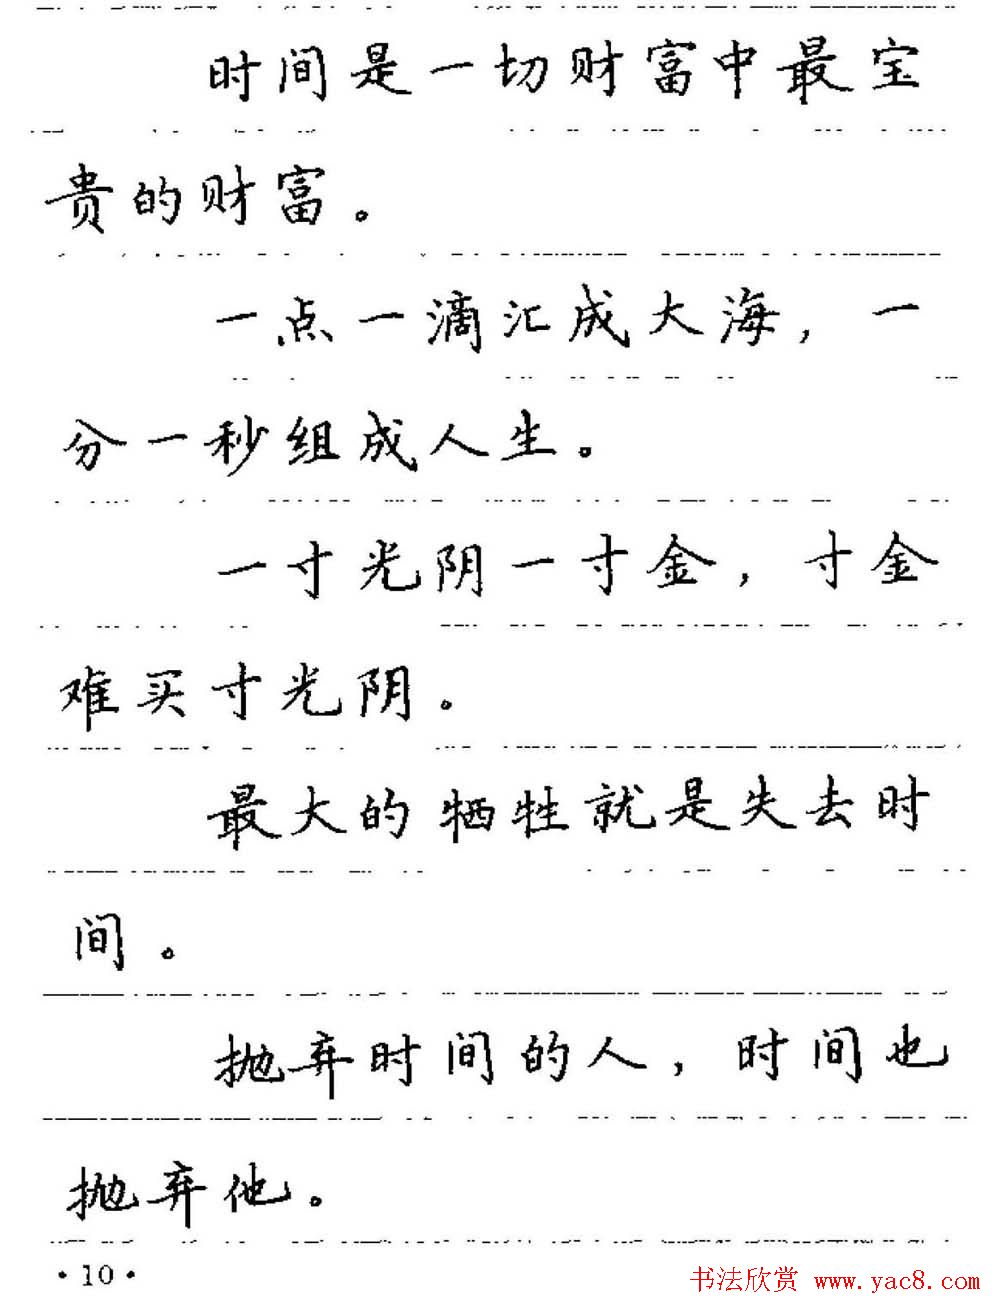 时间是一切财富中最宝
贵的财富。
一点一滴汇成大海，一
分一秒组成人生。
一寸光阴一寸金，寸金
难买寸光阴。
最大的牺牲就是失去时
间。
抛弃时间的人，时间也
抛弃他。
·10·
书法欣赏 www.yac8.com